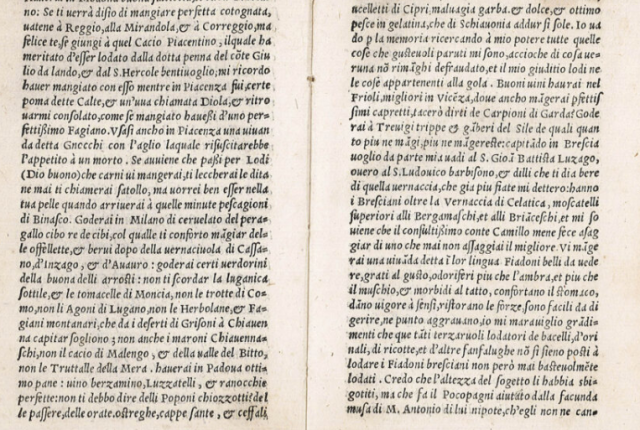 no: Se ti uerrà disio di mangiare perfetta cotognata,
uatene à Reggio, alla Mirandola, & à Correggio, ma
felice te se giungi à quel Cacio Piacentino, ilquale ha
meritato d'esser lodato dalla dotta penna del cõte Giu
lio da lando, & dal S. Hercole bentiuoglio; mi ricordo
hauer mangiato con esso mentre in Piacenza fui, certe
poma dette Calte, & un'uua chiamata Diola, & ritro
uarmi consolato, come se mangiato hauessi d'uno per-
fettissimo Fagiano. Vsasi ancho in Piacenza una uiuan
da detta Gnocchi con l'aglio laquale risuscitarebbe
l'appetito à un morto. Se auuiene che passi per Lodi
(Dio buono) che carni ui mangerai, ti leccherai le dita
ne mai ti chiamerai satollo, ma uorrei ben esser nella
tua pelle quando arriuerai à quelle minute pescagioni
di Binasco. Goderai in Milano di ceruelato del pera-
gallo cibo re de cibi, col quale ti conforto mãgiar del-
le offellette, & berui dopo della uernaciuola di Cassa-
no, d'Inzago, & d'Auauro: goderai certi uerdorini
della buona delli arrosti: non ti scordar la luganica
sottile, & le tomacelle di Moncia, non le trotte di Co-
mo, non li Agoni di Lugano, non le Herbolane, & Fa-
giani montanari, che da i deserti di Grisoni à Chiauen
na capitar sogliono; non anche i maroni Chiauenna-
schi, non il cacio di Malengo, & della ualle del Bitto,
non le Truttalle della Mera. hauerai in Padoua otti-
mo pane: uino berzamino, Luzzatelli, & ranocchie
perfette: non ti debbo dire delli Poponi chiozzotti del
le passere, delle orate. ostreghe, cappe sante, & ceffali,
ucelletti di Cipri, maluagia garba. & dolce, & ottimo
pesce in gelatina, che di Schiauonia addur si sole. Io ua
do p la memoria ricercando à mio potere tutte quelle
cose che gusteuoli paruti mi sono, accioche di cosa ue-
runa nõ rimãghi defraudato, et il mio giuditio lodi ne
le cose appartenenti alla gola. Buoni uini haurai nel
Frioli, migliori in Vicẽza, doue ancho mãgerai pfettis
simi capretti, tacerò dirti de Carpioni di Garda! Gode
rai à Treuigi trippe & gãberi del Sile de quali quan
to piu ne mãgi, piu ne mãgereste: capitãdo in Brescia
uoglio da parte mia uadi al S. Gioã Battista Luzago,
ouero al S. Ludouico barbisono, & dilli che ti dia bere
di quella uernaccia, che gia piu fiate mi dettero: hanno
i Bresciani oltre la Vernaccia di Celatica, moscatelli
superiori alli Bergamaschi, et alli Briãceschi, et mi so
uiene che il consultissimo conte Camillo mene fece assag
giar di uno che mai non assaggiai il migliore. Vi mãge
rai una uiuãda detta ĩ lor lingua Fiadoni belli da uede
re, grati al gusto, odoriferi piu che l'ambra, et piu che
il muschio, & morbidi al tatto, confortano il stomaco,
dãno uigore à sensi, ristorano le forze sono facili da di
gerire, ne punto aggrauano, io mi marauiglio grãdi-
menti che tãti terzaruoli lodatori de bacelli, d'ori
nali, di ricotte, et d'altre fanfalughe nõ si sieno posti à
lodare i Fiadoni bresciani non però mai basteuolmẽte
lodati. Credo che l'altezza del sogetto li habbia sbi-
gotiti, ma che fa il Pocopagni aiutato dalla facunda
musa di M. Antonio di lui nipote, ch'egli non ne can-